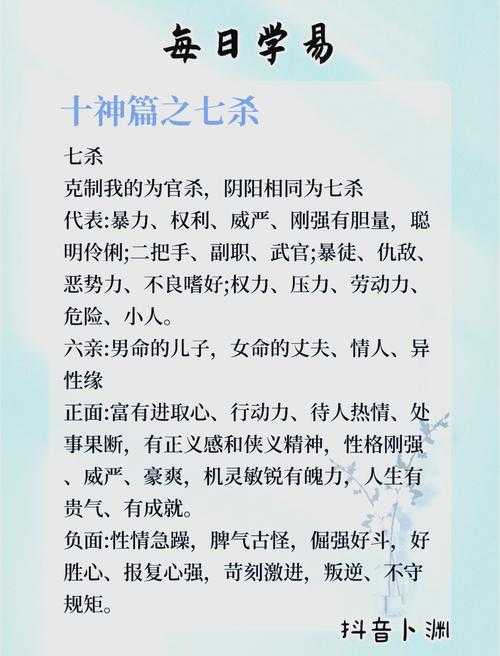 每日学易
十神篇之七杀
七杀
克制我的为官杀，阴阳相同为七杀
代表:暴力、权利、威严、刚强有胆量，聪
明伶俐;二把手、副职、武官;暴徒、仇敌、
恶势力、不良嗜好;权力、压力、劳动力、
危险、小人。
六亲:男命的儿子，女命的丈夫、情人、异
性缘
正面:富有进取心、行动力、待人热情、处
事果断，有正义感和侠义精神，性格刚强
、威严、豪爽，机灵敏锐有魄力，人生有
贵气、有成就。
负面:性情急躁，脾气古怪，倔强好斗，好
胜心、报复心强，苛刻激进，叛逆、不守
规矩。
抖音卜渊